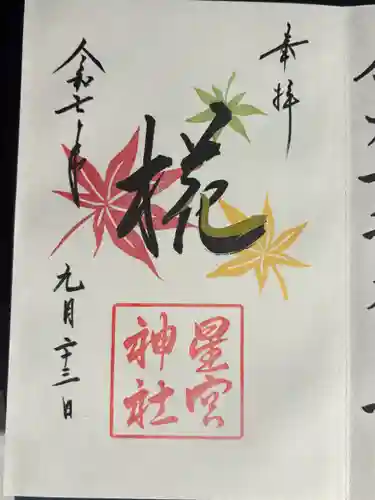 奉拝
椛
星宮
神社
令和七年
九月二十三日